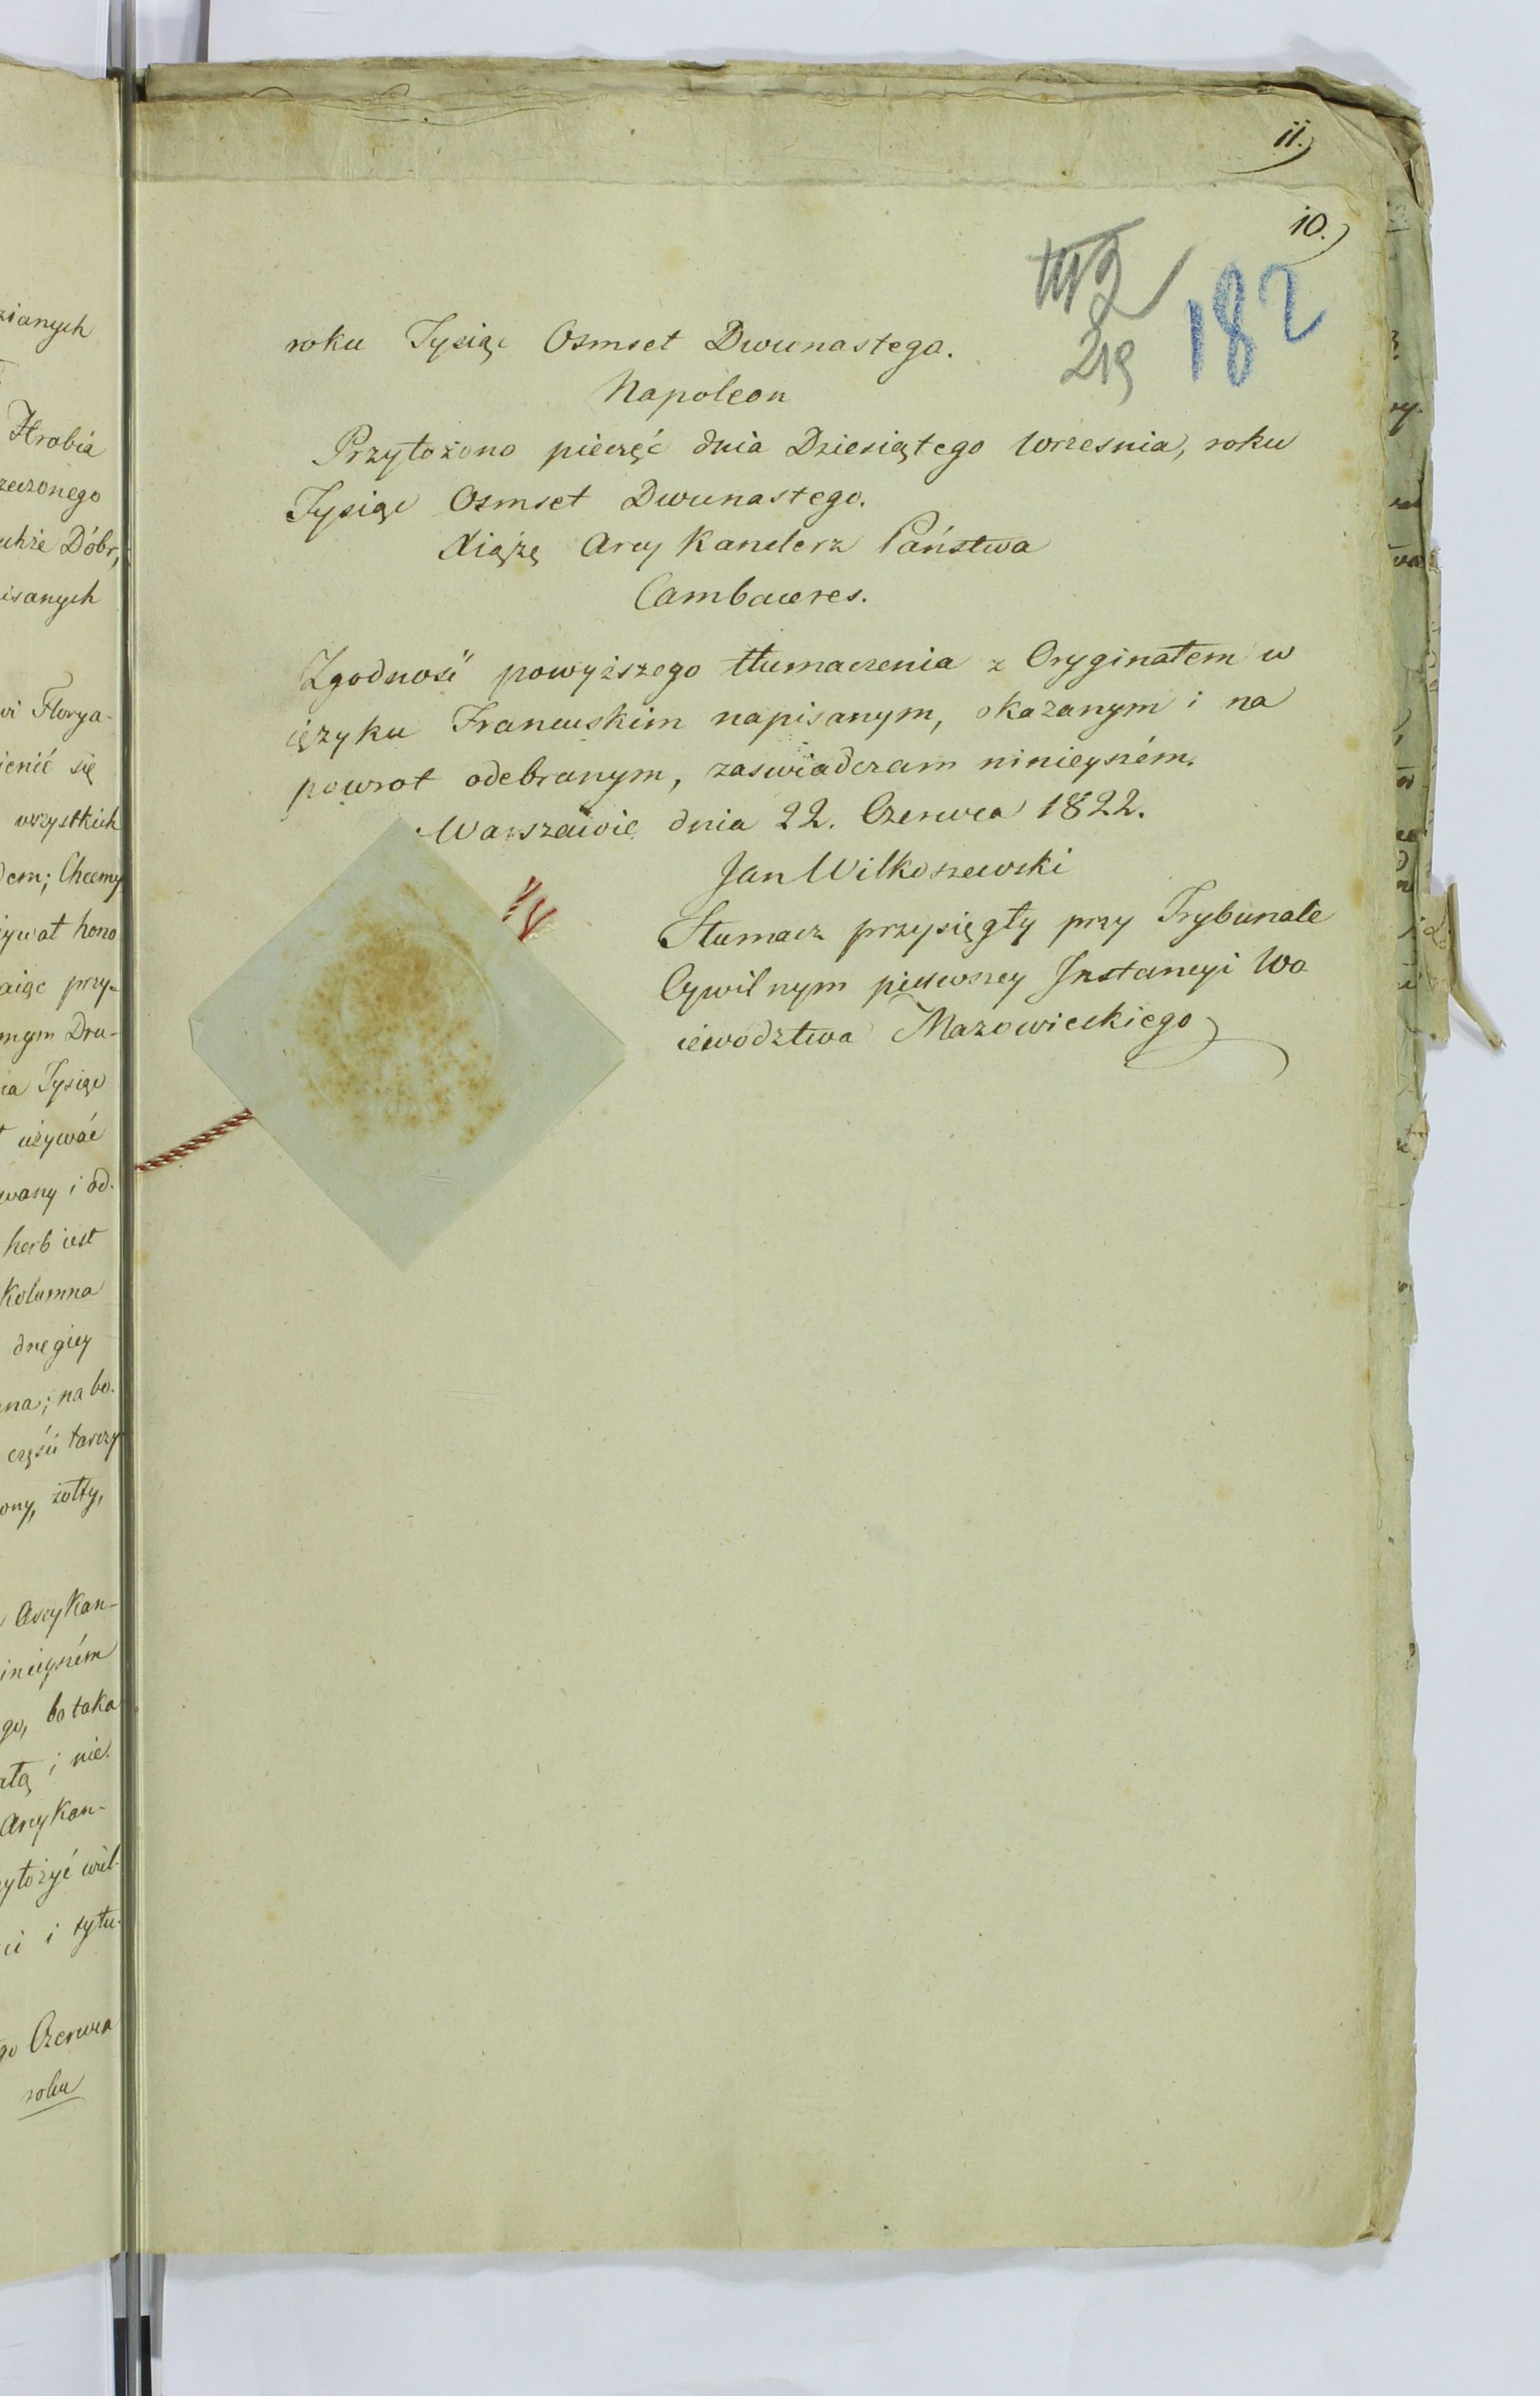 11.)
10.)
182
219
roku Tysiąc Osmset Dwunastego.
Napoleon
Przyłożono pieczęć dnia Dziesiątego Wrzesnia, roku
Tysiąc Osmset Dwunastego.
Xiążę Arcy Kanclerz Państwa
Cambaceres.
Zgodność powyższego tłumaczenia z Oryginałem w
ięzyku Francuskim napisanym, okazanym i na
powrot odebranym, zaswiadczam ninieyszém.
w Warszawie dnia 22. Czerwca 1822.
Jan Wilkoszewski
Tłumacz przysięgły przy Trybunale
Cywilnym pierwszey Instancyi Wo
iewodztwa Mazowieckiego
zianych
Hrabia
zeczonego
Dóbr,
isanych
Florya-
ienić się
wszystkich
dem; Chcemy
żywał hono
aiąc przy-
mym Dru-
ia Tysiąc
używać
wany i od-
herb iest
Kolumna
drugiey
na; na bo-
części tarczy
ony, żółty,
Arcykan-
inieyszém
go, bo taka
ałą i nie-
Arcykan-
yłożyć wiel-
ci i tytu-
go Czerwca
roku